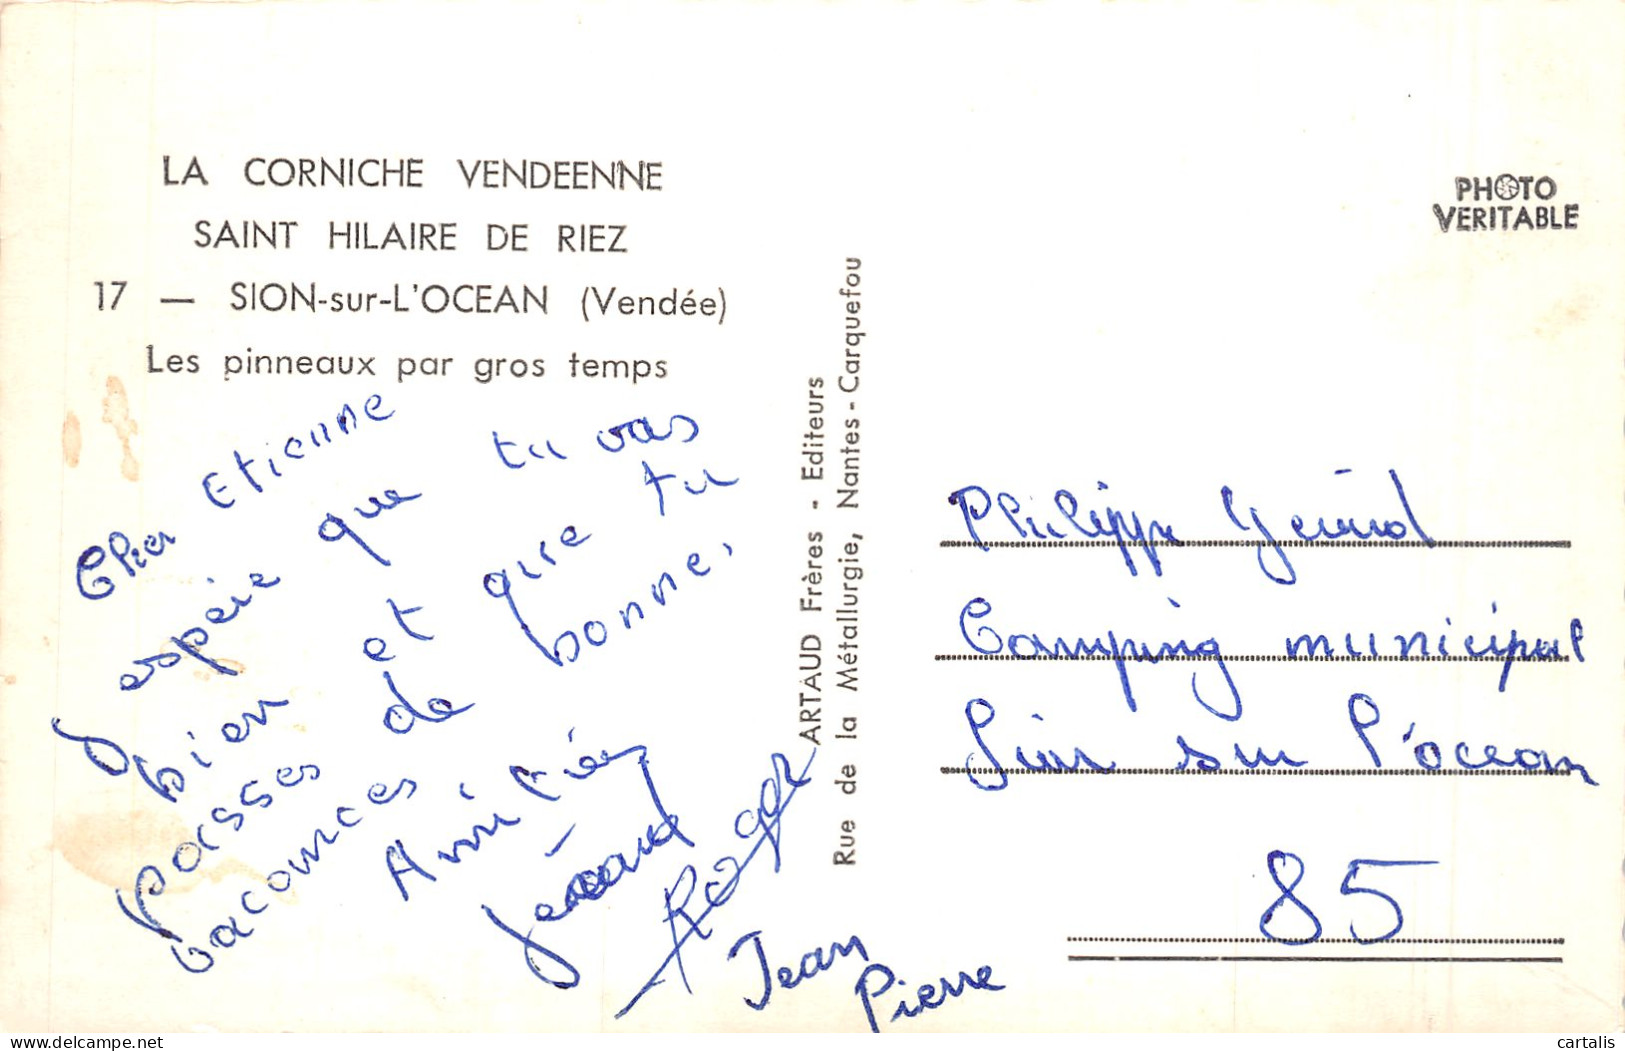 LA CORNICHE VENDEENNE
SAINT HILAIRE DE RIEZ
17 — SION-sur-L'OCEAN (Vendée)
Les pinneaux par gros temps
PHOTO
VERITABLE
ARTAUD Frères - Editeurs
Rue de la Métallurgie, Nantes - Carquefou
Cher Etienne
J espere que tu vas
bien et que tu
passes de bonne,
vacances
Amitiés
Gérard
Roger
Jean
Pierre
Philippe
Camping municipal
Sion sur l'ocean
85
cartalis